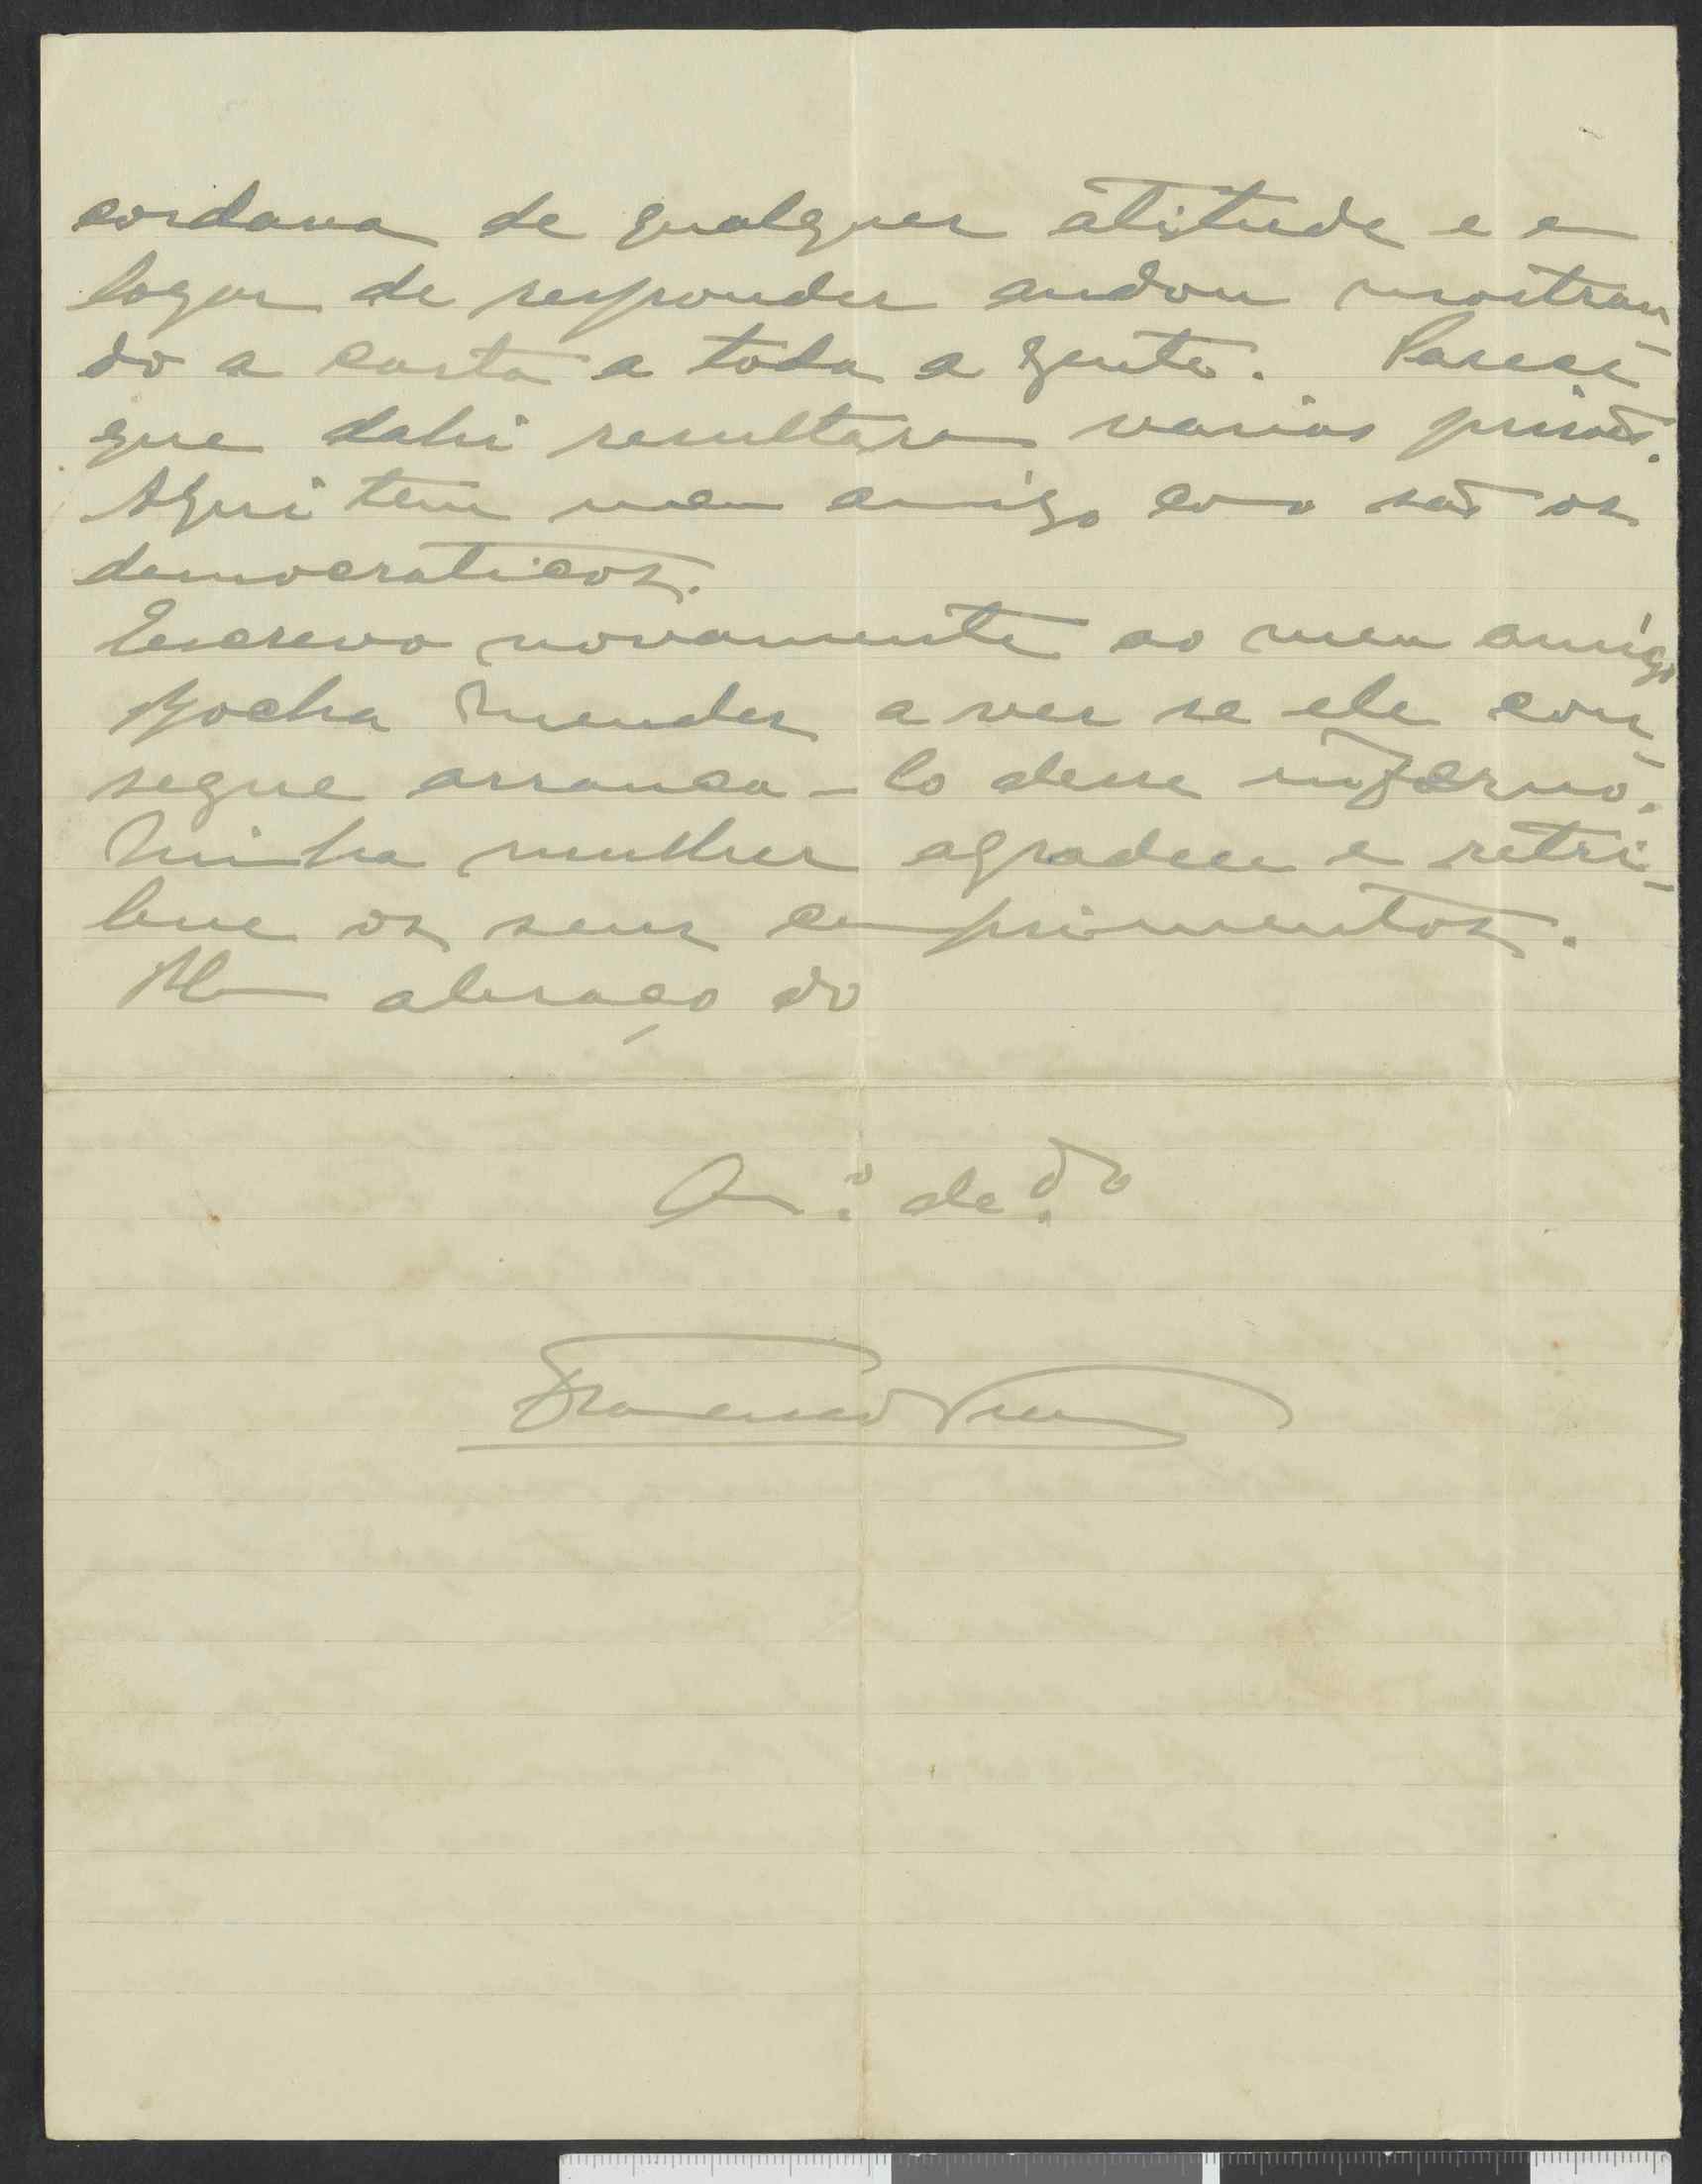 cordava de qualquer atitude e em
logar de responder andou mostran
do a carta a toda a gente. Parece
que dahi resultaram varias prisões.
Aqui tem meu amigo como são os
democraticos.
Escrevo novamente ao meu amigo
Rocha Mendes a ver se ele con-
segue arranca-lo desse inferno.
Minha mulher agradece e retri-
bue os seus cumprimentos.
Um abraço do
Am.º ded.do
Francisco